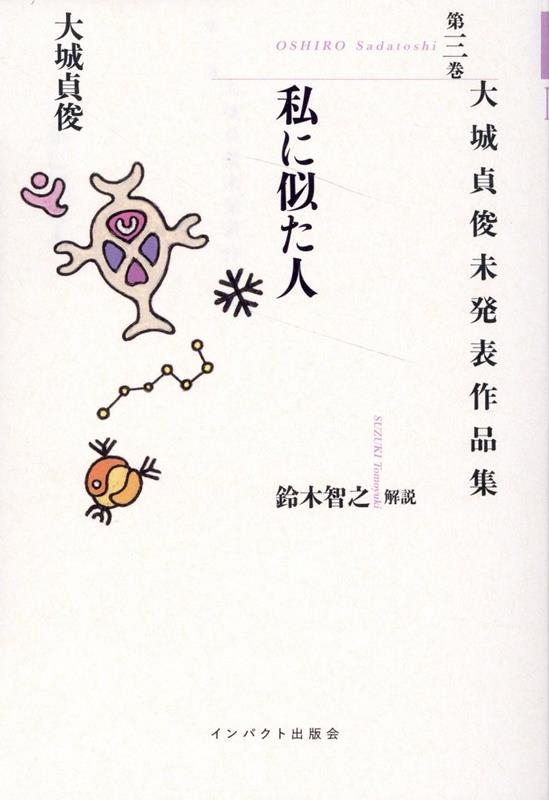 第三巻
大城貞俊未発表作品集
OSHIRO Sadatoshi
私に似た人
大城貞俊
鈴木智之 解説
SUZUKI Tomoyuki
インパクト出版会